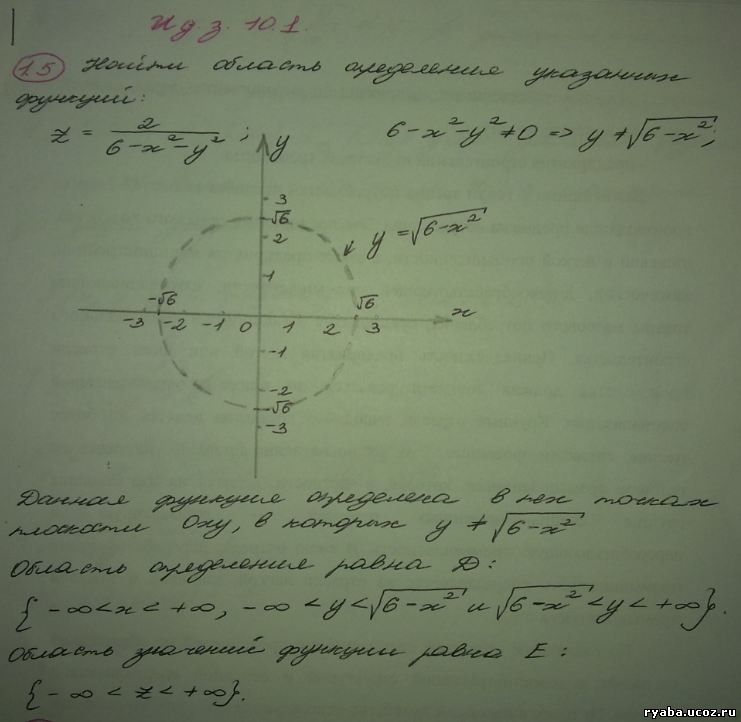 И.д.з. 10.1.
1.5 Найти область определения указанных
функций:
z = 2/(6-x²-y²);
6-x²-y²≠0 => y≠√(6-x²);
y
3
√6
2
y=√(6-x²)
1
-√6
√6
x
-3 -2 -1 0 1 2 3
-1
-2
-√6
-3
Данная функция определена в тех точках
плоскости Oxy, в которых y ≠ √(6-x²)
Область определения равна D:
{-∞<x<+∞, -∞<y<√(6-x²) и √(6-x²)<y<+∞}.
Область значений функции равна E:
{-∞<z<+∞}.
ryaba.ucoz.ru